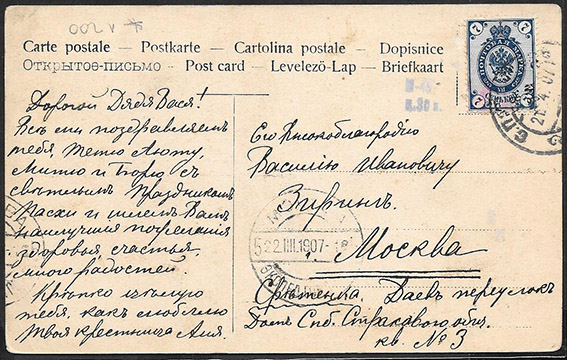 002 V *
Carte postale — Postkarte — Cartolina postale — Dopisnice
Открытое-письмо — Post card — Levelező-Lap — Briefkaart
Дорогой Дядя Вася!
Всѣ мы поздравляемъ
тебя, Тетю Люту,
Митю и Борю съ
свѣтлымъ Праздникомъ
Пасхи и шлемъ Вамъ
наилучшія пожеланія
здоровья счастья,
много радостей.
Крѣпко цѣлую
тебя, какъ люблю
Твоя крестница Аня.
Его Высокоблагородію
Василію Ивановичу
Зирингъ.
Москва
Срѣтенка, Даевъ переулокъ
Домъ Спб. Страхового общ.
кв. № 3
7 7
ПОЧТОВАЯ МАРКА
7 7
С.П.
21.4.07
МОСКВА
22.IIII.1907